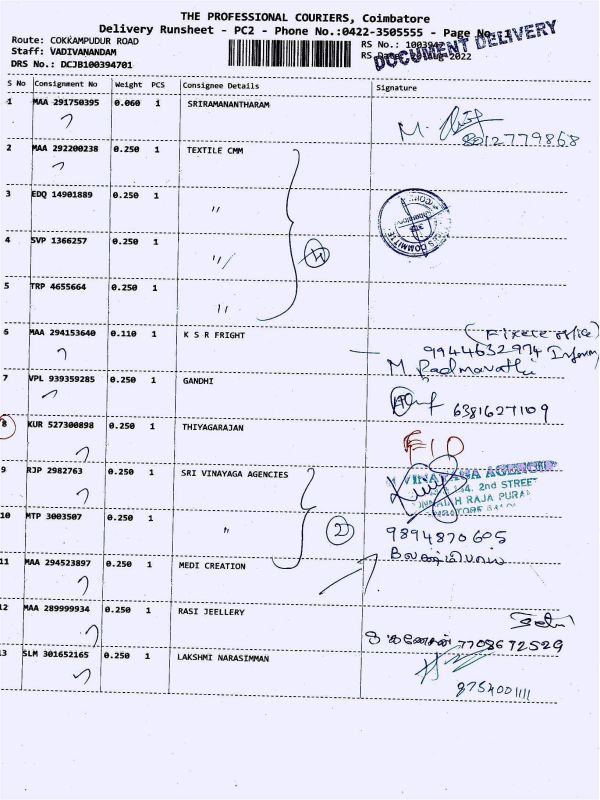 THE PROFESSIONAL COURIERS, Coimbatore
Delivery Runsheet - PC2 - Phone No.:0422-3505555 - Page No. 1
Route: COKKAMPUDUR ROAD
Staff: VADIVANANDAM
DRS No.: DCJB100394701
DOCUMENT DELIVERY
S No Consignment No Weight PCS Consignee Details Signature
1 MAA 291750395 0.060 1 SRIRAMANANTHARAM
M.
2 MAA 292200238 0.250 1 TEXTILE CMM
3 EDQ 14901889 0.250 1 "
4 SVP 1366257 0.250 1 "
5 TRP 4655664 0.250 1 "
6 MAA 294153640 0.110 1 K S R FRIGHT
9944632974
M. Padmavathi
7 VPL 939359285 0.250 1 GANDHI
6381627109
8 KUR 527300898 1 THIYAGARAJAN
9 RJP 2982763 0.250 1 SRI VINAYAGA AGENCIES
VINAYAGA
2nd STREET
RAJA PURA
10 MTP 3003507 0.250 1 "
2
9894870605
11 MAA 294523897 0.250 1 MEDI CREATION
12 MAA 289999934 0.250 1 RASI JEELLERY
7708672529
13 SLM 301652165 0.250 1 LAKSHMI NARASIMMAN